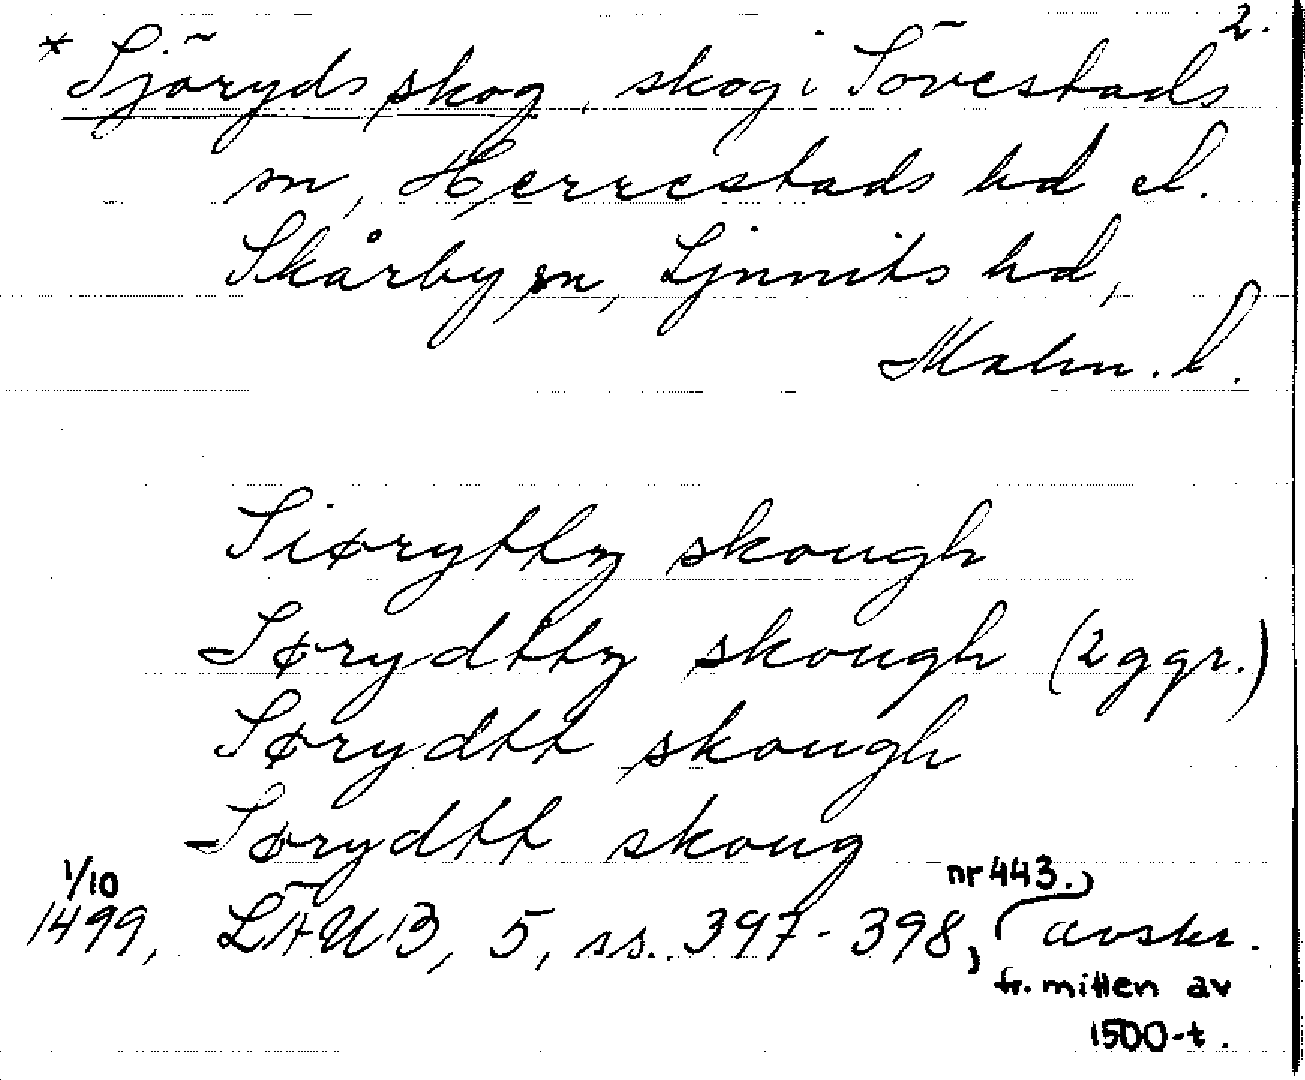 2.
* Sjöryds skog, skog i Sövestads
sn, Herrestads hd el.
Skårby sn, Ljunits hd,
Malm. l.
Siøryttz skough
Sørydttz skough (2 ggr.)
Sørydtt skough
Sørydtt skoug
1/10 nr 443.
1499, LÄUB, 5, ss. 397-398, avskr.
fr. mitten av
1500-t.